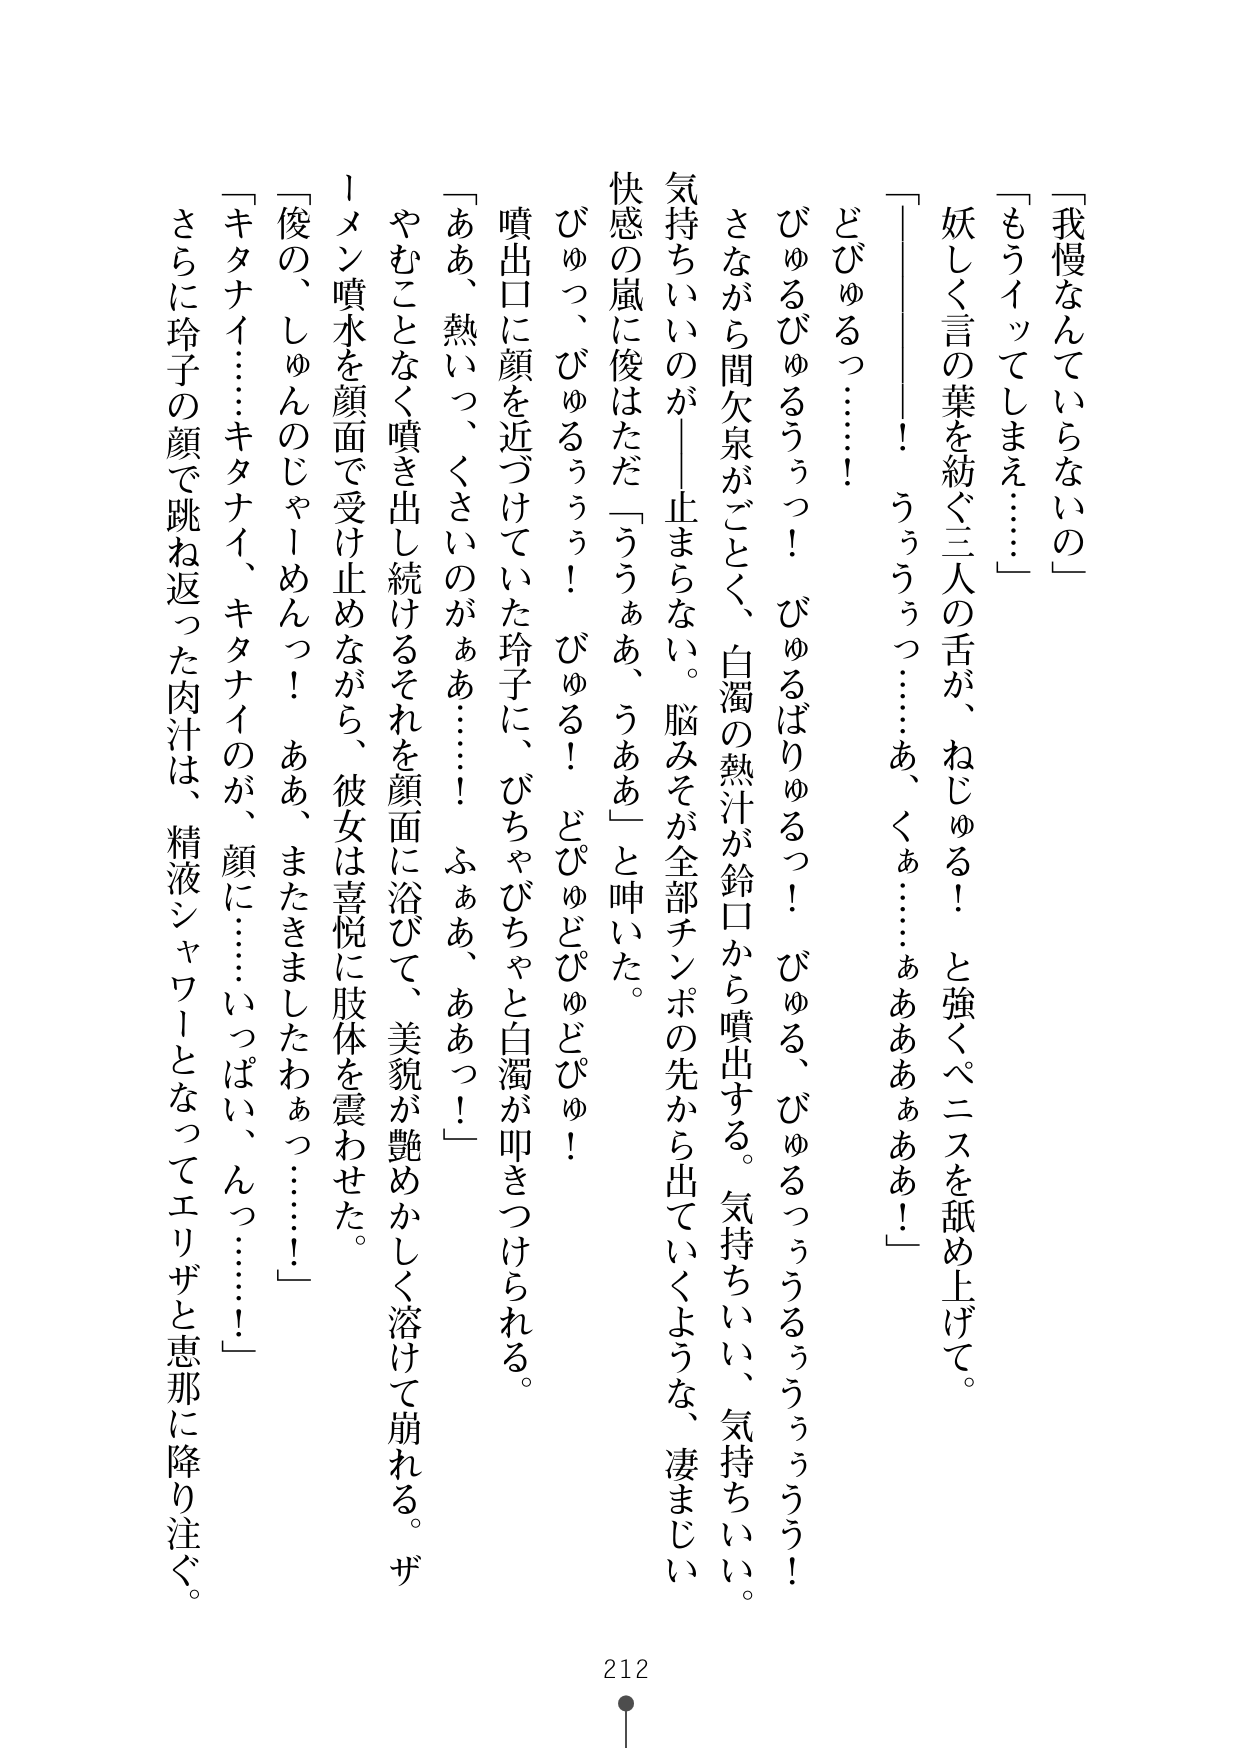 「我慢なんていらないの」
「もうイッてしまえ……」
　妖しく言の葉を紡ぐ三人の舌が、ねじゅる！　と強くペニスを舐め上げて。
「――――――！　うぅうぅっ……あ、くぁ……ぁあああぁああ！」
　どびゅるっ……！
　びゅるびゅるうぅっ！　びゅるばりゅるっ！　びゅる、びゅるっぅうるぅうぅぅうう！
　さながら間欠泉がごとく、白濁の熱汁が鈴口から噴出する。気持ちいい、気持ちいい。
気持ちいいのが――止まらない。脳みそが全部チンポの先から出ていくような、凄まじい
快感の嵐に俊はただ「うぅぁあ、うああ」と呻いた。
　びゅっ、びゅるぅぅぅ！　びゅる！　どぴゅどぴゅどぴゅ！
　噴出口に顔を近づけていた玲子に、びちゃびちゃと白濁が叩きつけられる。
「ああ、熱いっ、くさいのがぁあ……！　ふぁあ、ああっ！」
　やむことなく噴き出し続けるそれを顔面に浴びて、美貌が艶めかしく溶けて崩れる。ザ
ーメン噴水を顔面で受け止めながら、彼女は喜悦に肢体を震わせた。
「俊の、しゅんのじゃーめんっ！　ああ、またきましたわぁっ……！」
「キタナイ……キタナイ、キタナイのが、顔に……いっぱい、んっ……！」
　さらに玲子の顔で跳ね返った肉汁は、精液シャワーとなってエリザと恵那に降り注ぐ。
212